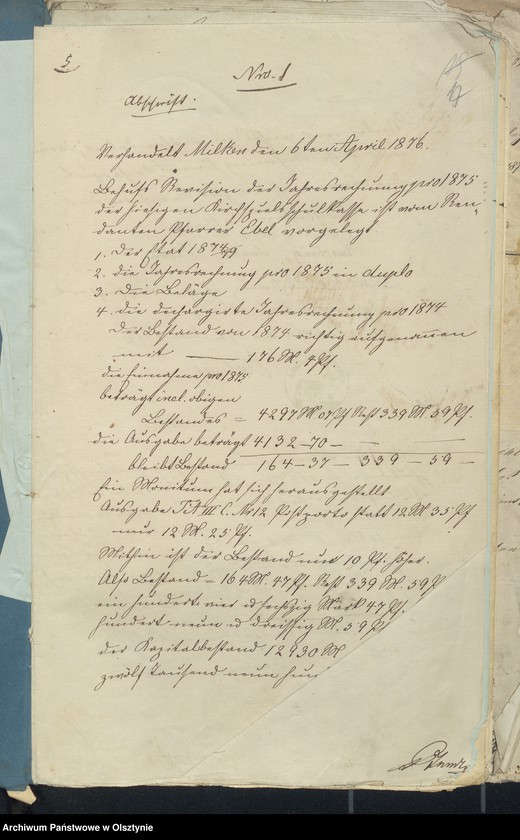 5
Nro. 1
Abschrift.
Verhandelt Milken den 6ten April 1876.
Behufs Revision der Jahresrechnung pro 1875
der hiesigen Kirchspielsschulkasse ist vom Ren-
danten Pfarrer Ebel vorgelegt
1. Der Etat 1874/79
2. die Jahresrechnung pro 1875 in duplo
3. Die Beläge
4. die dechargirte Jahresrechnung pro 1874
Der Bestand von 1874 richtig aufgenommen
mit — 176 M. 4 Pf.
die Einnahme pro 1875
beträgt incl. obigen
Bestandes = 4297 M 07 Pf Rest 339 M. 59 Pf.
die Ausgabe beträgt 4132 - 70 - — —
bleibt Bestand 164 - 37 - 339 - 59 -
Ein Monitum hat sich herausgestellt
Ausgabe Tit VIII C. Nr 12 Postporto statt 12 M 35 Pf
nur 12 M. 25 Pf.
Mithin ist der Bestand um 10 Pf. höher.
Also Bestand = 164 M. 47 Pf. Rest 339 M. 59 Pf
ein hundert vier u sechszig Mark 47 Pf.
hundert neun u dreissig M. 59 Pf
der Kapitalbestand 12930 M
zwölf Tausend neun hun
Archiwum Państwowe w Olsztynie